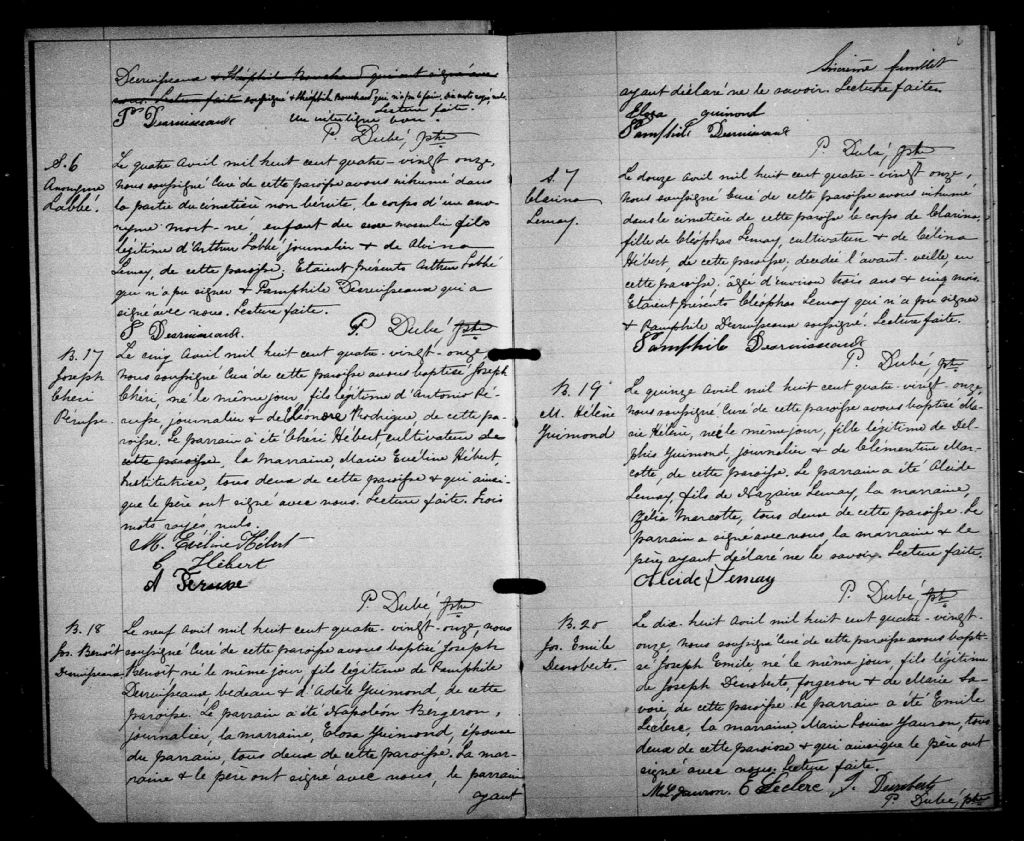 Desruisseaux & Théophile Bouchard qui ont signé avec
nous. Lecture faite soussigné & Théophile Bouchard qui n'a pu le faire. Dix mots rayés nuls.
Lecture faite.
P. Desruisseaux Un interligne bon.
P. Dubé, ptre
S. 6
Anonyme
Labbé.
Le quatre Avril mil huit cent quatre-vingt onze,
nous soussigné Curé de cette paroisse avons inhumé dans
la partie du cimetière non bénite, le corps d'un ano-
nyme mort-né enfant du sexe masculin fils
légitime d'Arthur Labbé journalier & de Alvina
Lemay, de cette paroisse; Etaient présents Arthur Labbé
qui n'a pu signer & Pamphile Desruisseaux qui a
signé avec nous. Lecture faite.
P Desruisseaux.
P. Dubé, ptre
B. 17
Joseph
Chéri
Pérusse.
Le cinq Avril mil huit cent quatre-vingt-onze,
nous soussigné Curé de cette paroisse avons baptisé Joseph
Chéri, né le même jour, fils légitime d'Antonio Pé-
russe, journalier & de Eléonore Rodrigue, de cette pa-
roisse. Le parrain a été Chéri Hébert cultivateur de
cette paroisse, la marraine, Marie Eveline Hébert,
Institutrice, tous deux de cette paroisse & qui ainsi-
que le père ont signé avec nous. Lecture faite. Trois
mots rayés nuls.
M. Evéline Hébert
C Hébert
A Peruse
P. Dubé, ptre
B. 18
Jos. Benoit
Desruisseaux
Le neuf Avril mil huit cent quatre-vingt-onze, nous
soussigné Curé de cette paroisse avons baptisé Joseph
Benoît né le même jour, fils légitime de Pamphile
Desruisseaux bedeau & d'Adèle Guimond, de cette
paroisse. Le parrain a été Napoléon Bergeron,
journalier, la marraine, Eloza Guimond, épouse
du parrain, tous deux de cette paroisse. La mar-
raine & le père ont signé avec nous, le parrain
ayant
6
Sixième feuillet
ayant déclaré ne le savoir. Lecture faite.
Eloza Guimond
Pamphile Desruisseaux
P. Dubé, ptre
S. 7
Clarina
Lemay.
Le douze Avril mil huit cent quatre-vingt onze,
nous soussigné Curé de cette paroisse avons inhumé
dans le cimetière de cette paroisse le corps de Clarina,
fille de Cléophas Lemay, cultivateur & de Célina
Hébert, de cette paroisse, décédée l'avant-veille en
cette paroisse, âgée d'environ trois ans & cinq mois.
Etaient présents Cléophas Lemay qui n'a pu signer
& Pamphile Desruisseaux soussigné. Lecture faite.
Pamphile Desruisseaux
P. Dubé, ptre
B. 19
M. Hélène
Guimond
Le quinze Avril mil huit cent quatre-vingt-onze,
nous soussigné Curé de cette paroisse avons baptisé Ma-
rie Hélène, née le même jour, fille légitime de Del-
phis Guimond, journalier & de Clémentine Mar-
cotte, de cette paroisse. Le parrain a été Alcide
Lemay, fils de Nazaire Lemay, la marraine,
Zélia Marcotte, tous deux de cette paroisse. Le
parrain a signé avec nous, la marraine & le
père, ayant déclaré ne le savoir. Lecture faite.
Alcide Lemay
P. Dubé, ptre
B. 20
Jos. Emile
Desroberts.
Le dix-huit Avril mil huit cent quatre-vingt-
onze, nous soussigné Curé de cette paroisse avons bapti-
sé Joseph Emile né le même jour, fils légitime
de Joseph Desroberts, forgeron & de Marie Sa-
voie de cette paroisse. Le parrain a été Emile
Leclerc, la marraine, Marie Louise Gauron, tous
deux de cette paroisse & qui ainsique le père ont
signé avec nous. Lecture faite.
M L Gauron. E Leclerc J. Desroberts
P. Dubé, ptre